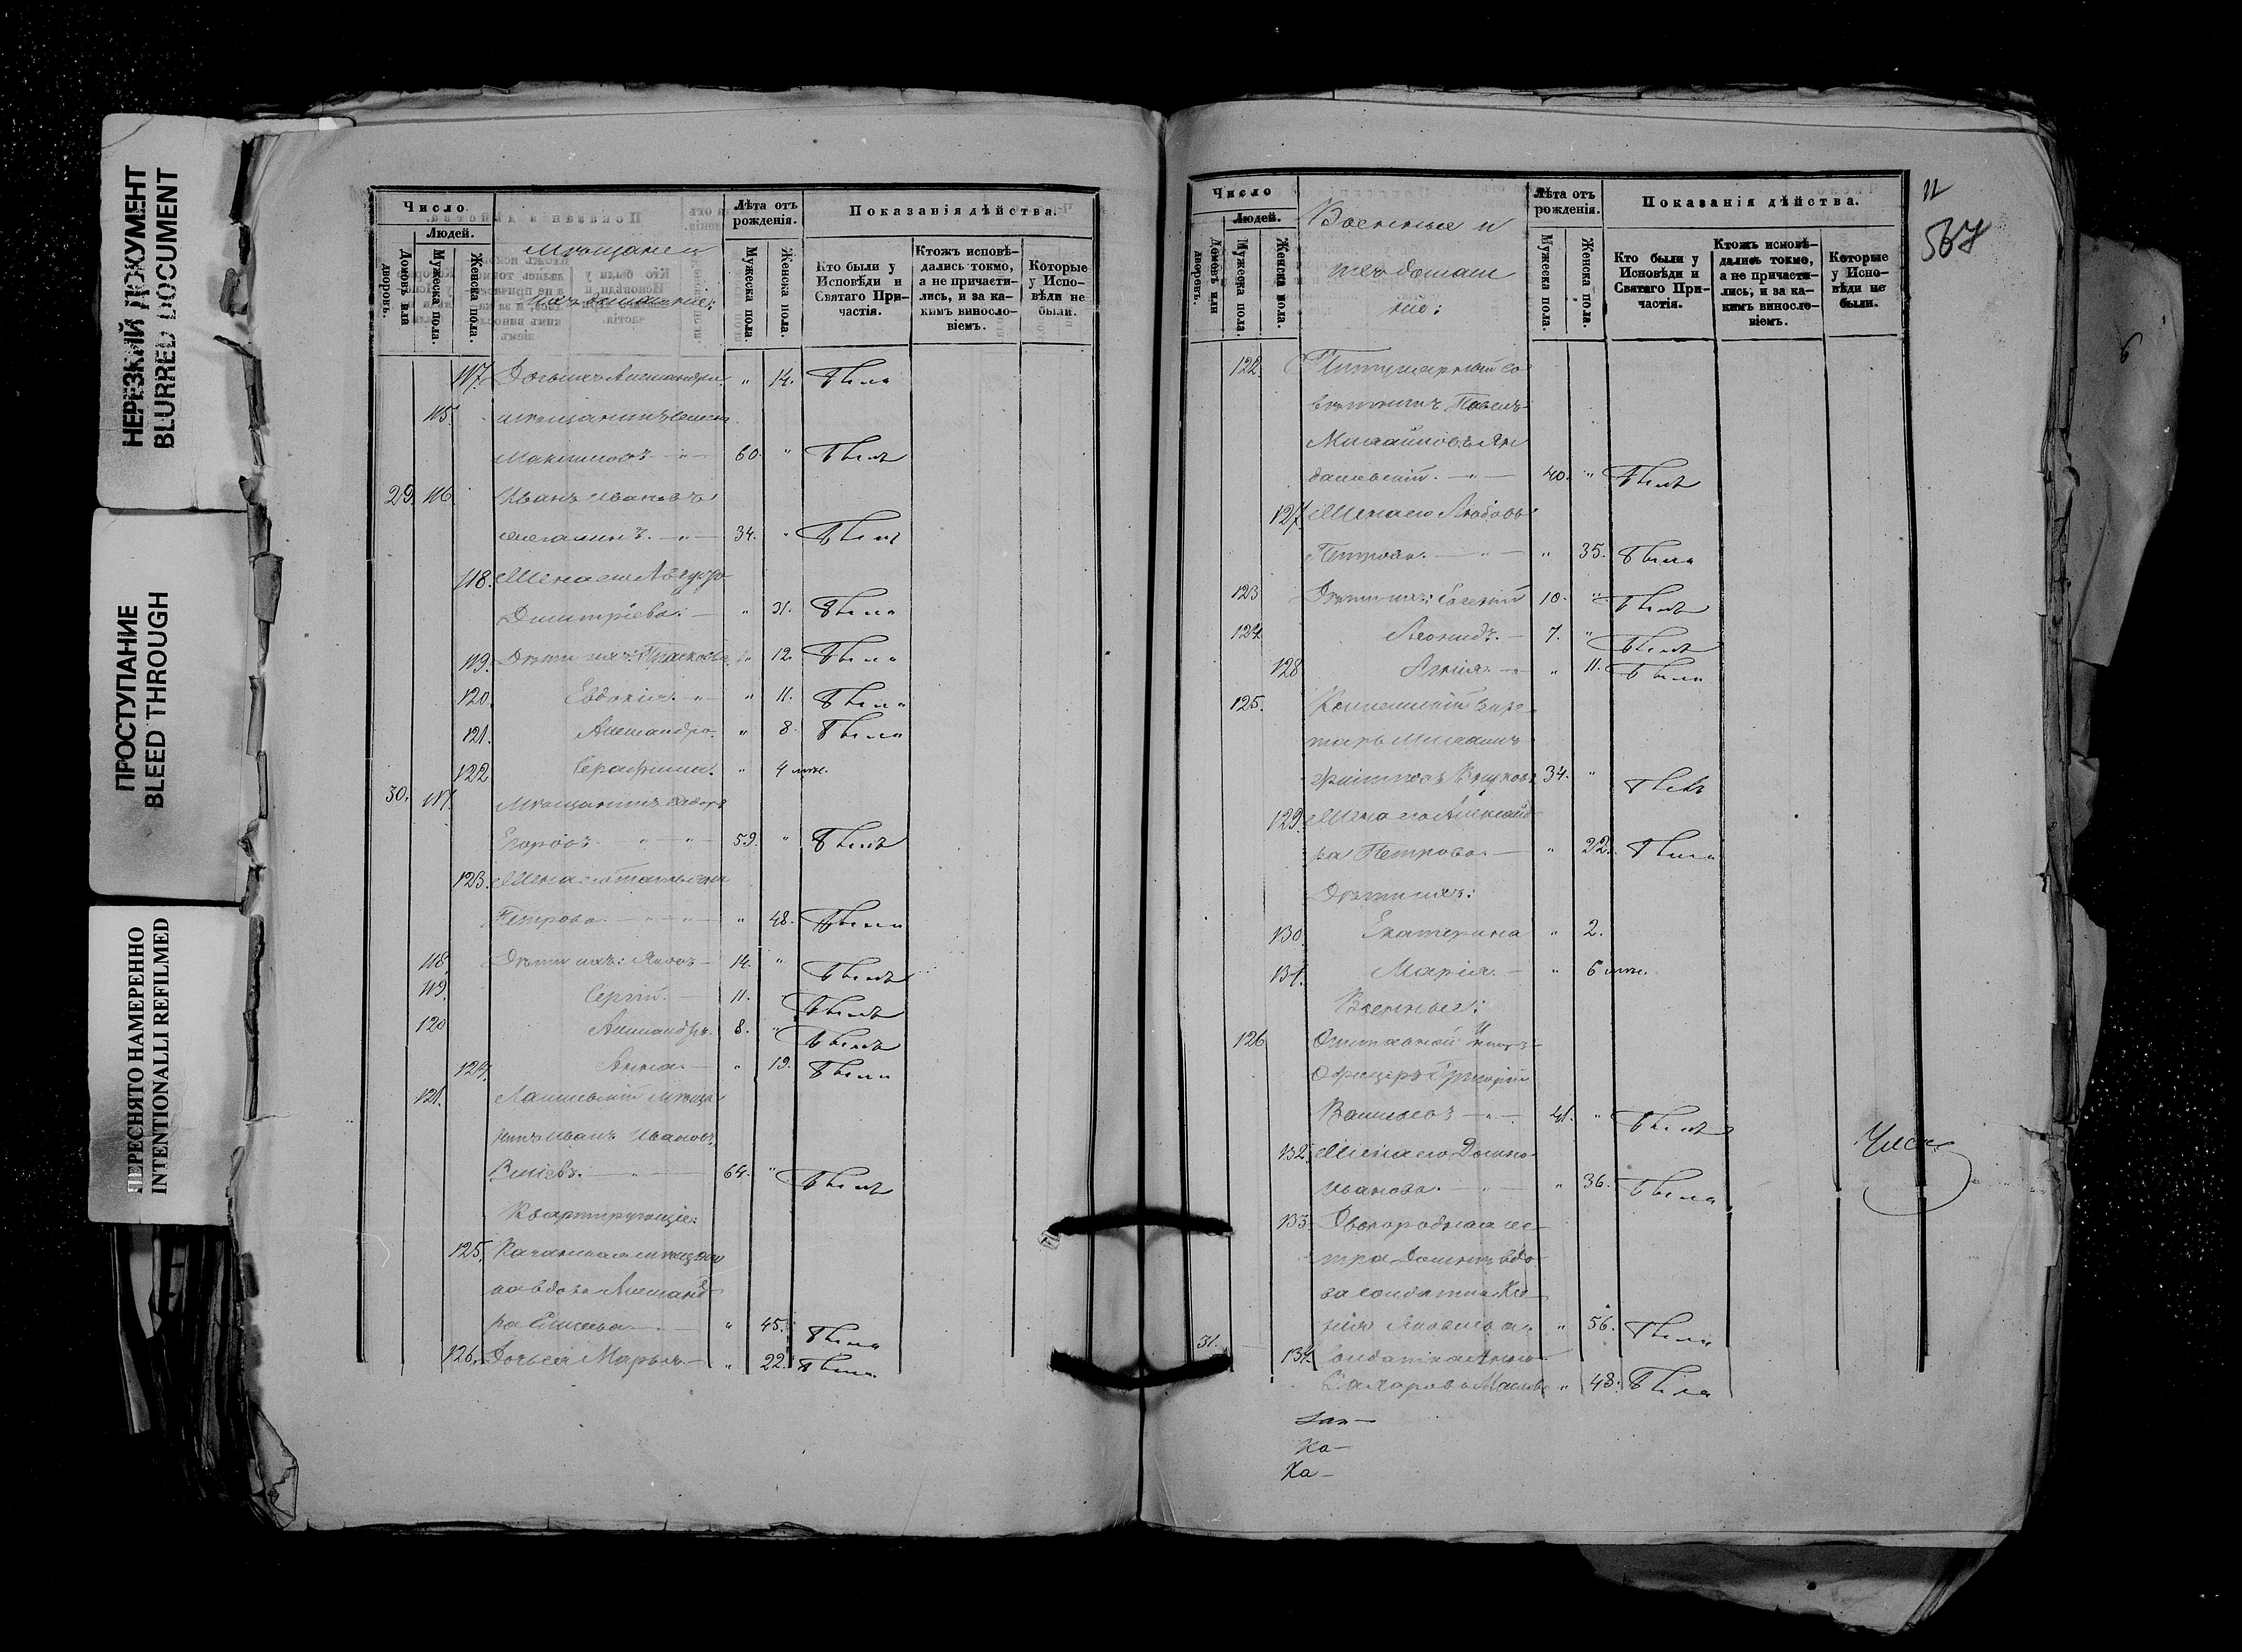 НЕРЕЗКИЙ ДОКУМЕНТ
BLURRED DOCUMENT
ПРОСТУПАНИЕ
BLEED THROUGH
ПЕРЕСНЯТО НАМЕРЕННО
INTENTIONALLI REFILMED
Число
Людей.
Домовъ или дворовъ.
Мужеска пола.
Женска пола.
Мѣщане и
ихъ домашніе:
Лѣта отъ рожденія.
Мужеска пола.
Женска пола.
Показанія дѣйства.
Кто были у Исповѣди и Святаго Причастія.
Ктожъ исповѣдались токмо, а не причастились, и за какимъ винословіемъ.
Которые у Исповѣди не были.
117. Дочь ихъ Александра " 14. Была
115. мѣщанинъ
Максимовъ " 60. " Былъ
29. 116. Иванъ Ивановъ
34. " Былъ
118. Жена его
Димитріева. " 31. Была
119. Дѣти ихъ: Прасковья " 12. Была
120. Евдокія. " 11. Была
121. Александра. " 8. Была
122. Серафима. " 4 мѣс.
30. 117. Мѣщанинъ
Егоровъ " 59. " Былъ
123. Жена его Татьяна
Петрова. " 48. Была
118. Дѣти ихъ: Яковъ 14. " Былъ
119. Сергій. 11. Былъ
120. Александръ. 8. " Былъ
124. Анна. " 19. Была
121. Лаишевскій мѣща
нинъ Иванъ Ивановъ
64. " Былъ
Квартирующіе:
125. Казанская мѣщан
ка вдова Александ
ра " 45. Была
126. Дочь ея Марья. " 22. Была
11
567
Число
Людей.
Домовъ или дворовъ.
Мужеска пола.
Женска пола.
Военные и
ихъ домаш
ніе:
Лѣта отъ рожденія.
Мужеска пола.
Женска пола.
Показанія дѣйства.
Кто были у Исповѣди и Святаго Причастія.
Ктожъ исповѣдались токмо, а не причастились, и за какимъ винословіемъ.
Которые у Исповѣди не были.
122. Титулярный со
вѣтникъ Павелъ
Михайловъ Ян
" 40. " Былъ
127. Жена его Любовь
Петрова. " 35. Была
123 Дѣти ихъ: 10. " Былъ
124 Леонидъ. 7. " Былъ
128 " 11. Была
125. Коллежскій Секре
тарь Михаилъ
34. " Былъ
129. Жена его Александ
ра Петрова. " 22. Была
Дѣти ихъ:
130. Екатерина " 2.
131. Марія. " 6 мѣс.
Военные:
126. Отставной Унтеръ
Офицеръ Григорій
Васильевъ " 41. " Былъ
132. Жена его Домна
Иванова. " 36. Была
133. Двоюродная се
стра Домны вдо
ва солдатка
Яковлева. " 56. Была
31. 134. Солдатка Анна
Захарова " 48. Была
Ка
Ка
6